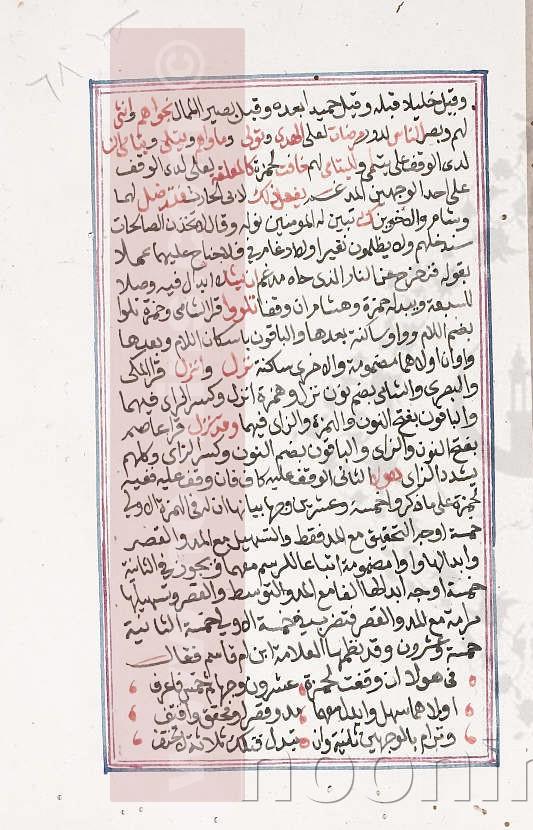 وقيل خليلا قبله وقيل حميدا بعده وقيل بصير الممال نجواهم وانثى
لهم وبصر الناس لدوري مرضات لعلي الهدى وتولى وماواهم ويتلى ويتامى ان
لدى الوقف على يتمى واليتامى لهم خافت لحمزة كالمعلقة لعلي لدى الوقف
على احد الوجهين المدغم يفعل ذلك لابي الحارث فقد ضل لهما
وشام والاخوين تبين له المومنين نوله وقال لاتخذن الصالحات
سندخلهم ولا يظلمون نقيرا ولا ادغام في فلا جناح عليهما عملا
بقوله فزحزح عن النار الذي حاه مدغم ان يشا ابدال فيه وصلا
للسبعة ويبدله حمزة وهشام ان وقفا تلووا قرا الشامي وحمزة تلوا
بضم اللام وواو ساكنة بعدها والباقون باسكان اللام وبعدها
واوان اولاهما مضمومة والاخرى ساكنة نزل وانزل قرا المكي
والبصري والشامي بضم نون نزل وهمزة انزل وكسر الزاي فيهما
والباقون بفتح النون والهمزة والزاي فيهما وقد نزل قرا عاصم
بفتح النون والزاي والباقون بضم النون وكسر الزاي وكلهم
يشدد الزاي هولا الثاني الوقف عليه كاف فان وقف عليه ففيه
لحمزة على ما ذكروا خمسة وعشرين وجها بيانها ان له في الهمزة الاولى
خمسة اوجه التحقيق مع المد فقط والتسهيل مع المد والقصر
وابدالها واوا مضمومة اتباعا للرسم معهما ويجوز في الثانية
خمسة اوجه ابدالها الفا مع المد والتوسط والقصر وتسهيلها
مرامة مع المد والقصر فتضرب في خمسة الاولى خمسة الثانية
خمسة وعشرون وقد نظمها العلامة ابن ام قاسم فقال
في هولا ان وقفت لحمزة عشرون وجها ثم خمس فاعرف
اولاهما سهل وابدل معهما مد وقصر وحقق واقتف
وترام بالوجهين ثانية وان تبدل فتلك ثلاثة لا تختفي
noonir